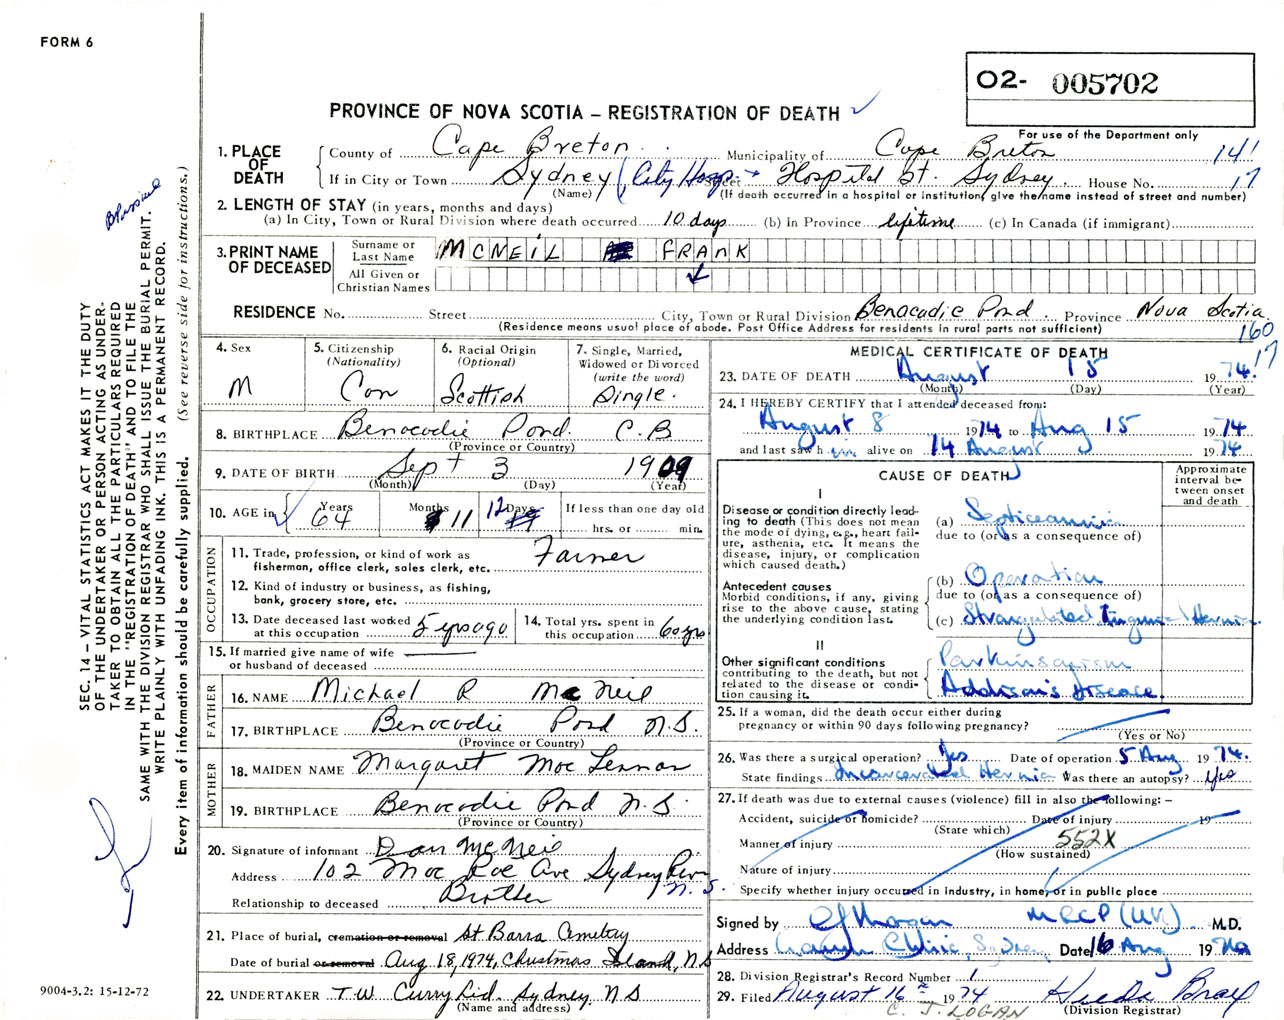 FORM 6
O2- 005702
PROVINCE OF NOVA SCOTIA – REGISTRATION OF DEATH
For use of the Department only
1. PLACE OF DEATH
County of Cape Breton Municipality of Cape Breton 141
If in City or Town Sydney (City Hosp. Street Hospital St. Sydney House No. 17
(Name) (If death occurred in a hospital or institution, give the name instead of street and number)
2. LENGTH OF STAY (in years, months and days)
(a) In City, Town or Rural Division where death occurred 10 days (b) In Province lifetime (c) In Canada (if immigrant)
3. PRINT NAME OF DECEASED
Surname or Last Name MCNEIL FRANK
All Given or Christian Names
RESIDENCE No. Street City, Town or Rural Division Benacadie Pond Province Nova Scotia
(Residence means usual place of abode. Post Office Address for residents in rural parts not sufficient)
160
17
4. Sex
M
5. Citizenship
(Nationality)
Can
6. Racial Origin
(Optional)
Scottish
7. Single, Married,
Widowed or Divorced
(write the word)
Single.
8. BIRTHPLACE Benacadie Pond. C.B
(Province or Country)
9. DATE OF BIRTH Sept 3 1909
(Month) (Day) (Year)
10. AGE in Years 64 Months 11 Days 12 If less than one day old
hrs. or min.
OCCUPATION
11. Trade, profession, or kind of work as
fisherman, office clerk, sales clerk, etc. Farmer
12. Kind of industry or business, as fishing,
bank, grocery store, etc.
13. Date deceased last worked
at this occupation 5 yrs ago
14. Total yrs. spent in
this occupation 60 yrs
15. If married give name of wife
or husband of deceased
FATHER
16. NAME Michael R McNeil
17. BIRTHPLACE Benacadie Pond N.S.
(Province or Country)
MOTHER
18. MAIDEN NAME Margaret MacLennan
19. BIRTHPLACE Benacadie Pond N.S.
(Province or Country)
20. Signature of informant Dan McNeil
Address 102 Mac Rae Ave Sydney River
N.S.
Relationship to deceased Brother
21. Place of burial, cremation or removal St Barra Cemetery
Date of burial or removal Aug 18, 1974, Christmas Island, N.S
22. UNDERTAKER T.W. Curry Ltd. Sydney, N S
(Name and address)
MEDICAL CERTIFICATE OF DEATH
23. DATE OF DEATH August 15 1974
(Month) (Day) (Year)
24. I HEREBY CERTIFY that I attended deceased from:
August 8 1974 to Aug 15 1974
and last saw him alive on 14 August 1974
CAUSE OF DEATH
Approximate interval between onset and death
I
Disease or condition directly leading to death (This does not mean the mode of dying, e.g., heart failure, asthenia, etc. It means the disease, injury, or complication which caused death.)
(a) Septicaemia
due to (or as a consequence of)
Antecedent causes
Morbid conditions, if any, giving rise to the above cause, stating the underlying condition last.
(b) Operation
due to (or as a consequence of)
(c) Strangulated Inguinal Hernia
II
Other significant conditions
contributing to the death, but not related to the disease or condition causing it.
Parkinsonism
Addison's disease.
25. If a woman, did the death occur either during
pregnancy or within 90 days following pregnancy?
(Yes or No)
26. Was there a surgical operation? Yes Date of operation 5 Aug 1974
State findings Incarcerated Hernia Was there an autopsy? Yes
27. If death was due to external causes (violence) fill in also the following: –
Accident, suicide or homicide? Date of injury 19
(State which)
Manner of injury 552X
(How sustained)
Nature of injury
Specify whether injury occurred in industry, in home, or in public place
Signed by MRCP (UK) M.D.
Address Clinic, Sydney Date 16 Aug 19
28. Division Registrar's Record Number 1
29. Filed August 16 1974
C. J. LOGAN
(Division Registrar)
SEC. 14 – VITAL STATISTICS ACT MAKES IT THE DUTY
OF THE UNDERTAKER OR PERSON ACTING AS UNDER-
TAKER TO OBTAIN ALL THE PARTICULARS REQUIRED
IN THE "REGISTRATION OF DEATH" AND TO FILE THE
SAME WITH THE DIVISION REGISTRAR WHO SHALL ISSUE THE BURIAL PERMIT.
WRITE PLAINLY WITH UNFADING INK. THIS IS A PERMANENT RECORD.
Every item of information should be carefully supplied. (See reverse side for instructions.)
9004-3.2: 15-12-72